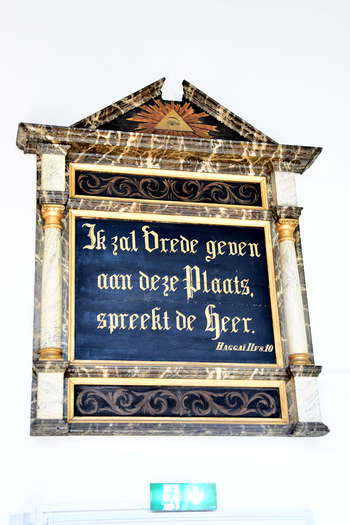 Ik zal Vrede geven
aan deze Plaats,
spreekt de Heer.
HAGGAI II vs. 10